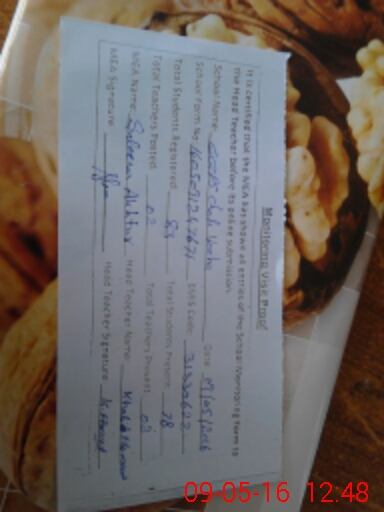 Monitoring Visit Proof
It is certified that the MEA has shown all entries of the School Monitoring Form to
the Head Teacher before its online submission.
School Name: Date 09/05/2016
School Form No: EMIS Code:
Total Students Registered: 84 Total Students Present: 78
Total Teachers Posted: 02 Total Teachers Present: 02
MEA Name: Saleem Akhtar Head Teacher Name:
MEA Signature: Head Teacher Signature
09-05-16 12:48